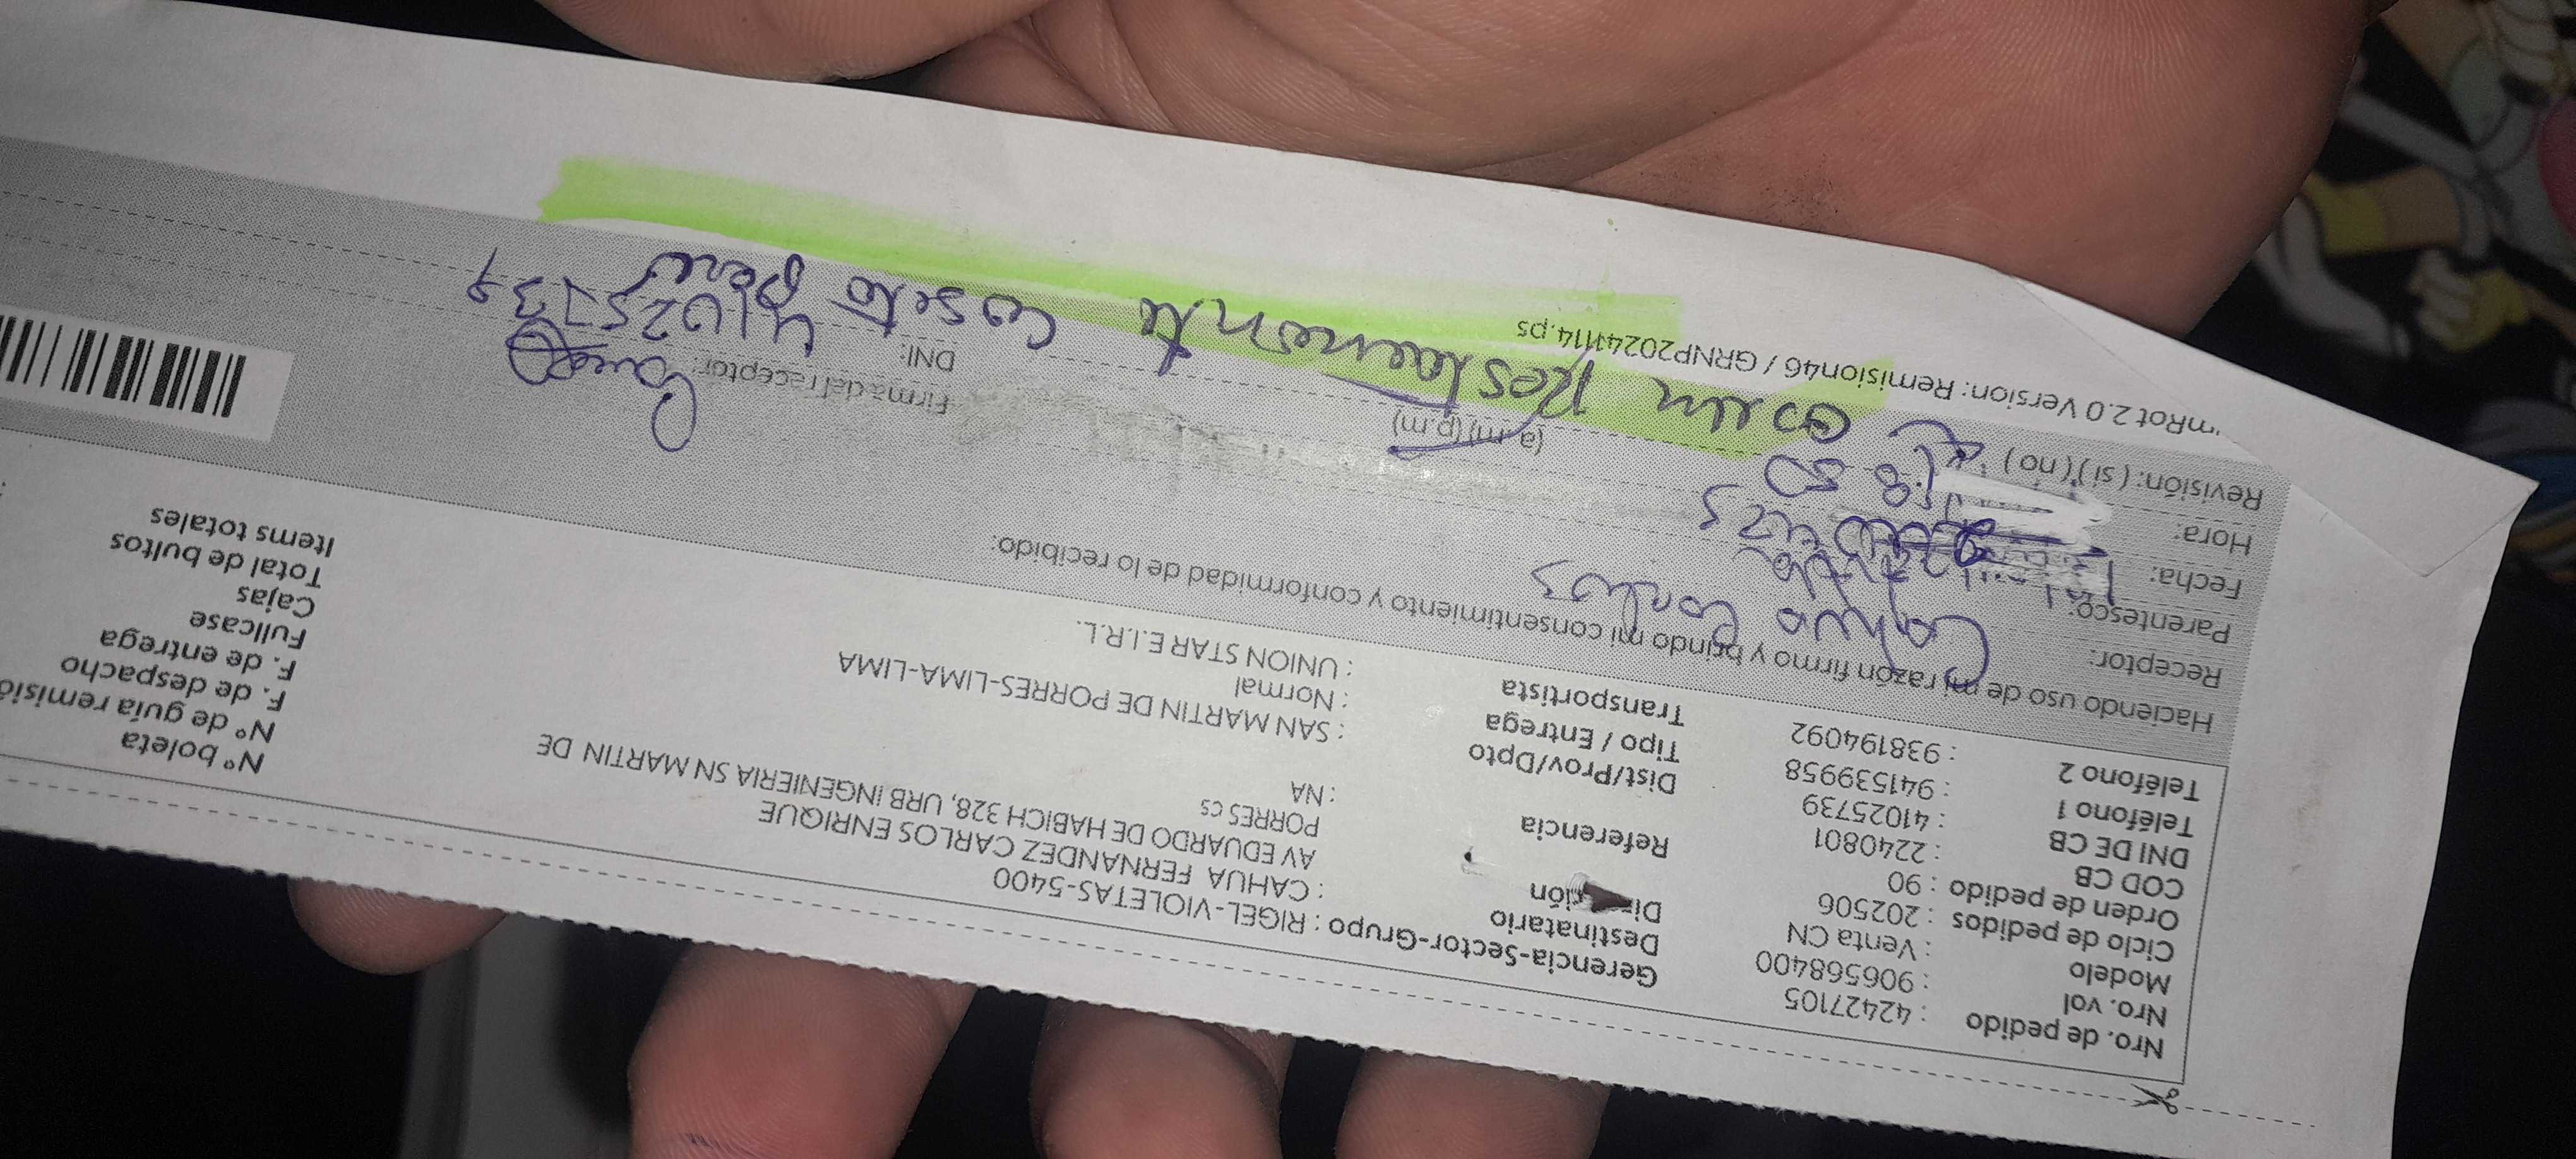 Nro. de pedido : 42427105
Nro. vol : 906568400
Modelo : Venta CN
Ciclo de pedidos : 202506
Orden de pedido : 90
COD CB : 2240801
DNI DE CB : 41025739
Teléfono 1 : 941539958
Teléfono 2 : 938194092
Gerencia-Sector-Grupo : RIGEL-VIOLETAS-5400
Destinatario : CAHUA FERNANDEZ CARLOS ENRIQUE
Di ción AV EDUARDO DE HABICH 328, URB INGENIERIA SN MARTIN DE
PORRES cs
Referencia : NA
Dist/Prov/Dpto : SAN MARTIN DE PORRES-LIMA-LIMA
Tipo / Entrega : Normal
Transportista : UNION STAR E.I.R.L.
Nº boleta
Nº de guía remisió
F. de despacho
F. de entrega
Fullcase
Cajas
Total de bultos
Items totales
Haciendo uso de mi razón firmo y brindo mi consentimiento y conformidad de lo recibido:
Receptor: Cahua Carlos
Parentesco:
Fecha:
Hora: 18:50 (a.m) (p.m)
Revisión: (si) (no)
Firma del receptor:
DNI: 41025739
"mRot 2.0 Version: Remision46 / GRNP20241114.ps